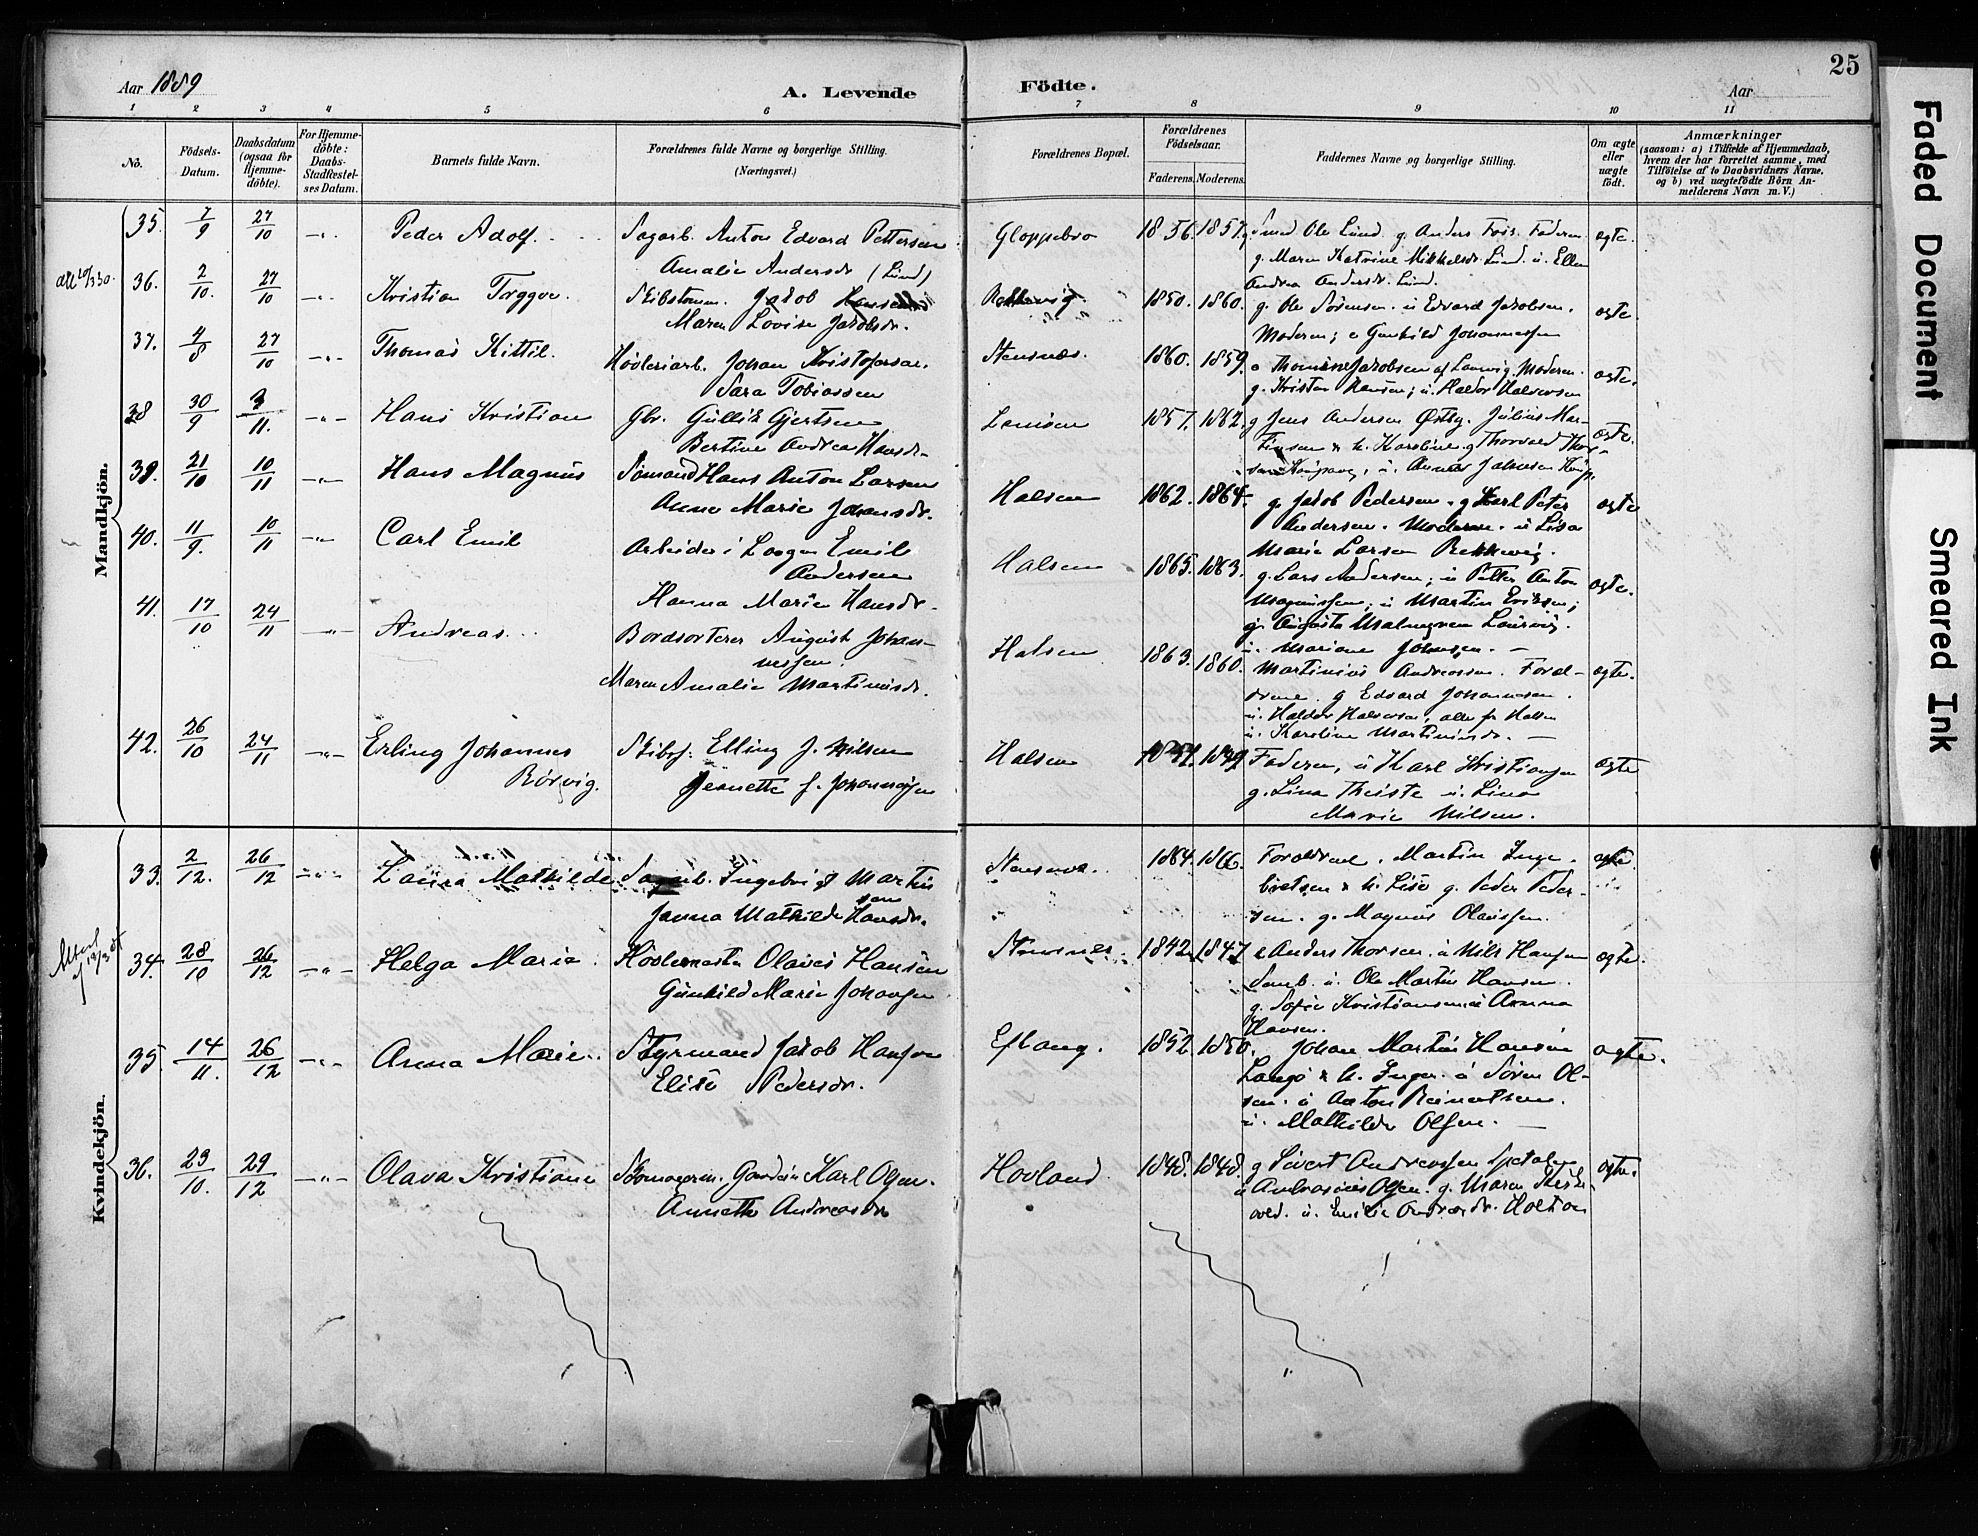 Aar 1889
A. Levende
Födte.
Aar
25
1 2 3 4 5 6 7 8 9 10 11
No.
Födsels-
Datum.
Daabsdatum
(ogsaa for
Hjemme-
döbte).
For Hjemme-
döbte:
Daabs-
Stadfæstel-
ses Datum.
Barnets fulde Navn.
Forældrenes fulde Navne og borgerlige Stilling.
(Næringsvei.)
Forældrenes Bopæl.
Forældrenes
Födselsaar.
Faderens. Moderens.
Faddernes Navne og borgerlige Stilling.
Om ægte
eller
uægte
födt.
Anmærkninger
(saasom: a) i Tilfælde af Hjemmedaab,
hvem der har forrettet samme, med
Tilföielse af to Daabsvidners Navne,
og b) ved uægtefödte Börn An-
melderens Navn m. V.)
Mandkjön.
35. 7/9 27/10 -"- Peder Adolf. Sagarb. Anton Edvard Pettersen
Amalie Andersdr (Lund)
Gloppebro 1856. 1857. Smed Ole Lund. g. Anders Fris. Faderen
g. Maren Katrine Mikkelsdr. Lund. u. Ellen
Andrea Andersdr. Lund.
ægte.
36. 2/10. 27/10 -"- Kristian Tryggve. Skibstømm. Jakob Hansen
Maren Lovise Jakobsdr.
1850. 1860. g. Ole Sørensen. u Edvard Jakobsen.
Moderen; e Gunhild Johannessen
ægte.
37. 4/8 27/10 -"- Thomas Kittil. Høvleriarb. Johan Kristofersen.
Sara Tobiassen
Stensnæs. 1860. 1859. e Thomine Jakobsen af Laurvig. Moderen.
g. Kristen Hansen; u. Haldor Halvorsen
ægte.
38 30/9 3/11. -"- Hans Kristian Gbr. Gullik Gjertsen
Bertine Andrea Hansdr.
1857. 1862. g Jens Andersen Østby. Julius Mar-
tinsen & h. Karoline. g Thorvald Thor-
ægte.
39. 21/10 10/11 -"- Hans Magnus Sømand Hans Anton Larsen
Anne Marie Johansdr.
Halsen 1862. 1864. g. Jakob Pedersen. g Karl Peter
Andersen. Moderen. u Lisa
Marie Larsen Rekkevig.
ægte
40. 11/9. 10/11 -"- Carl Emil Arbeider i Laagen Emil
Andersen
Hanna Marie Hansdr.
Halsen 1865. 1863. g. Lars Andersen; u Petter Anton
Magnussen; u Martin Eriksen;
g. Augusta Malmgren Laurvig.
u. Mariane Johnsen. -
ægte.
41. 17/10 24/11 -"- Andreas. Bordsorterer August Johan-
nessen.
Maren Amalie Martinusdr.
Halsen 1863. 1860. Martinius Andreassen. Foræl-
drene. g Edvard Johannesen.
u. Haldor Halvorsen, alle fr Halsen
u. Karoline Martinusdr. -
ægte.
42. 26/10 24/11 -"- Erling Johannes
Rørvig.
Skibsf. Elling J. Nilsen
Jeanette f. Johannesen
Halsen 1849 Faderen, u Karl Kristiansen
g. Lina Theiste u. Lina
Marie Nilsen.
ægte
Kvindekjön.
33. 2/12. 26/12 -"- Laura Mathilde Ingebrigt Martin
sen
Janna Mathilde Hansdr.
1864. 1866. Forældrene. Martin Inge-
bretsen & h. Lise g. Peder Peder-
sen. g. Magnus Olaussen.
ægte
34. 28/10 26/12 -"- Helga Marie. Høvlemester Olaves Hansen
Gunhild Marie Johansen
Stensnes. 1842. 1847 e Anders Thorsen. u Nils Hansen
u. Ole Martin Hansen.
g. Sofie Kristiansen u Anna
Hansen.
ægte.
35. 14/11. 26/12 -"- Anna Marie. Styrmand Jakob Hansen
Elise Pedersdr.
Eftang. 1852. 1850. Johan Martin Hansen
Langø & h. Inger. u Søren Ol-
sen. u Anton Reinertsen.
u. Mathilde Olsen. -
ægte.
36. 23/10. 29/12 -"- Olava Kristiane Karl Olsen.
Annette Andreasdr
Hovland 1848. 1848. g Sivert Andreassen
u Ambrosius Olsen. g. Maren
u. Emilie Andreasdr. Holton
ægte.
Faded Document
Smeared Ink